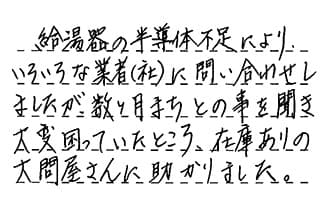 給湯器の半導体不足により
いろいろな業者(社)に問い合わせし
ましたが数ヶ月まちとの事を聞き
大変困っていたところ、在庫ありの
大問屋さんに助かりました。